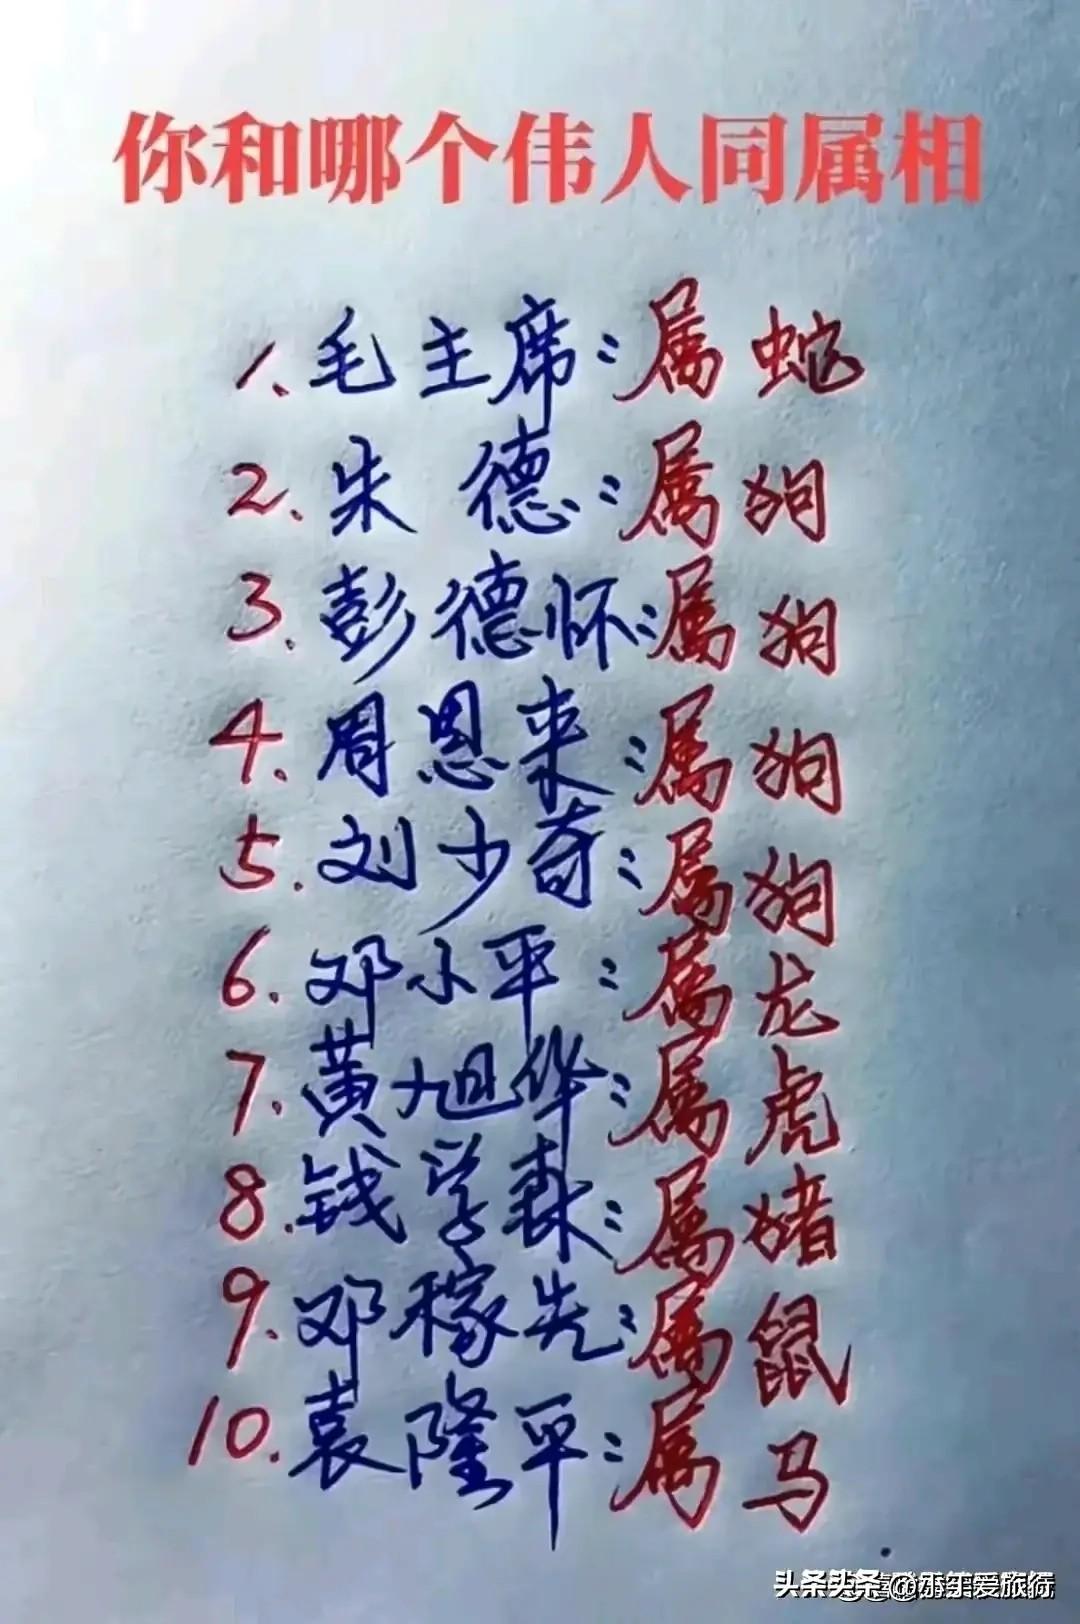 你和哪个伟人同属相
1、毛主席：属蛇
2.朱德：属狗
3.彭德怀：属狗
4.周恩来：属狗
5.刘少奇：属狗
6.邓小平：属龙
7.黄旭华：属虎
8.钱学森：属猪
9.邓稼先：属鼠
10.袁隆平：属马
头条头条 @乐乐爱旅行